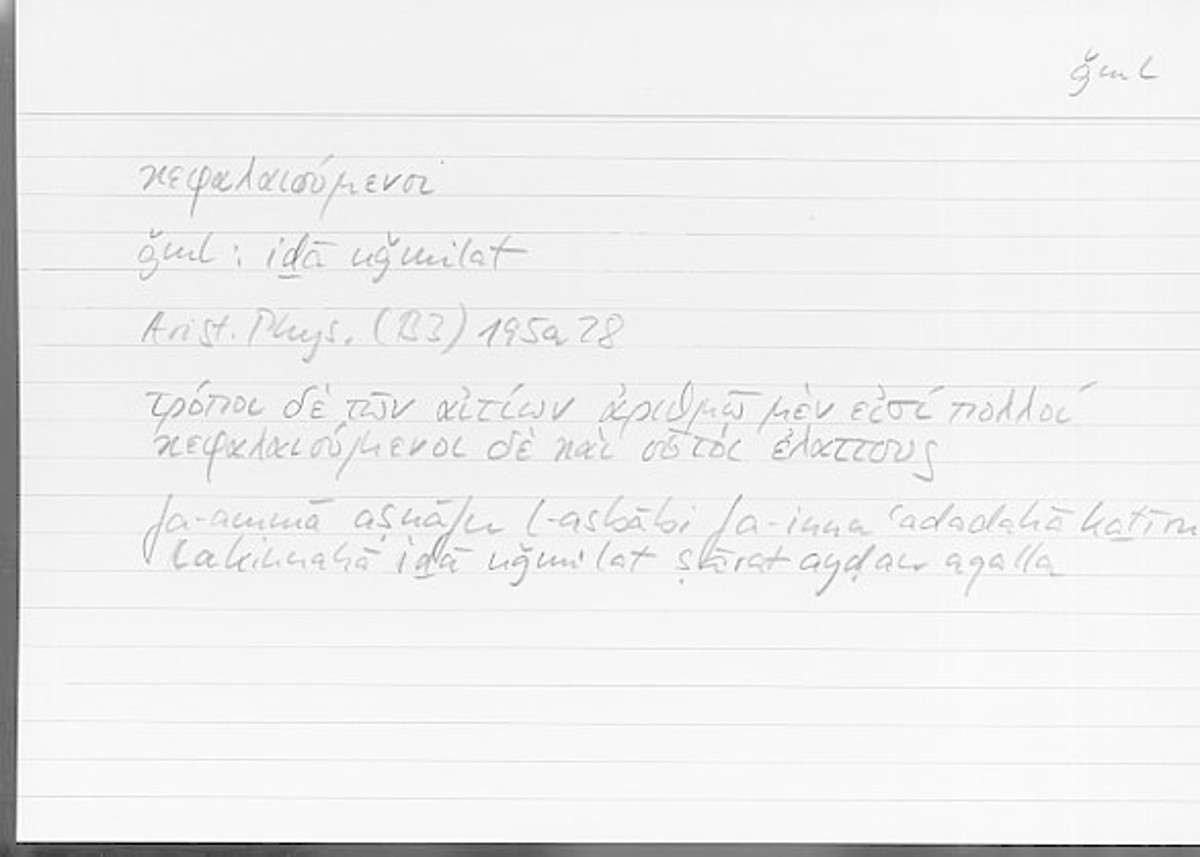 ǧml
κεφαλαιούμενοι
ǧml : iḏā uǧmilat
Arist. Phys. (B3) 195a28
τρόποι δὲ τῶν αἰτίων ἀριθμῷ μέν εἰσί πολλοί
κεφαλαιούμενοι δὲ καὶ οὗτοι ἐλάττους
fa-ammā aṣnāfu l-asbābi fa-inna ʿadadahā kaṯīrun
lakinnahā iḏā uǧmilat ṣārat ayḍan aqalla